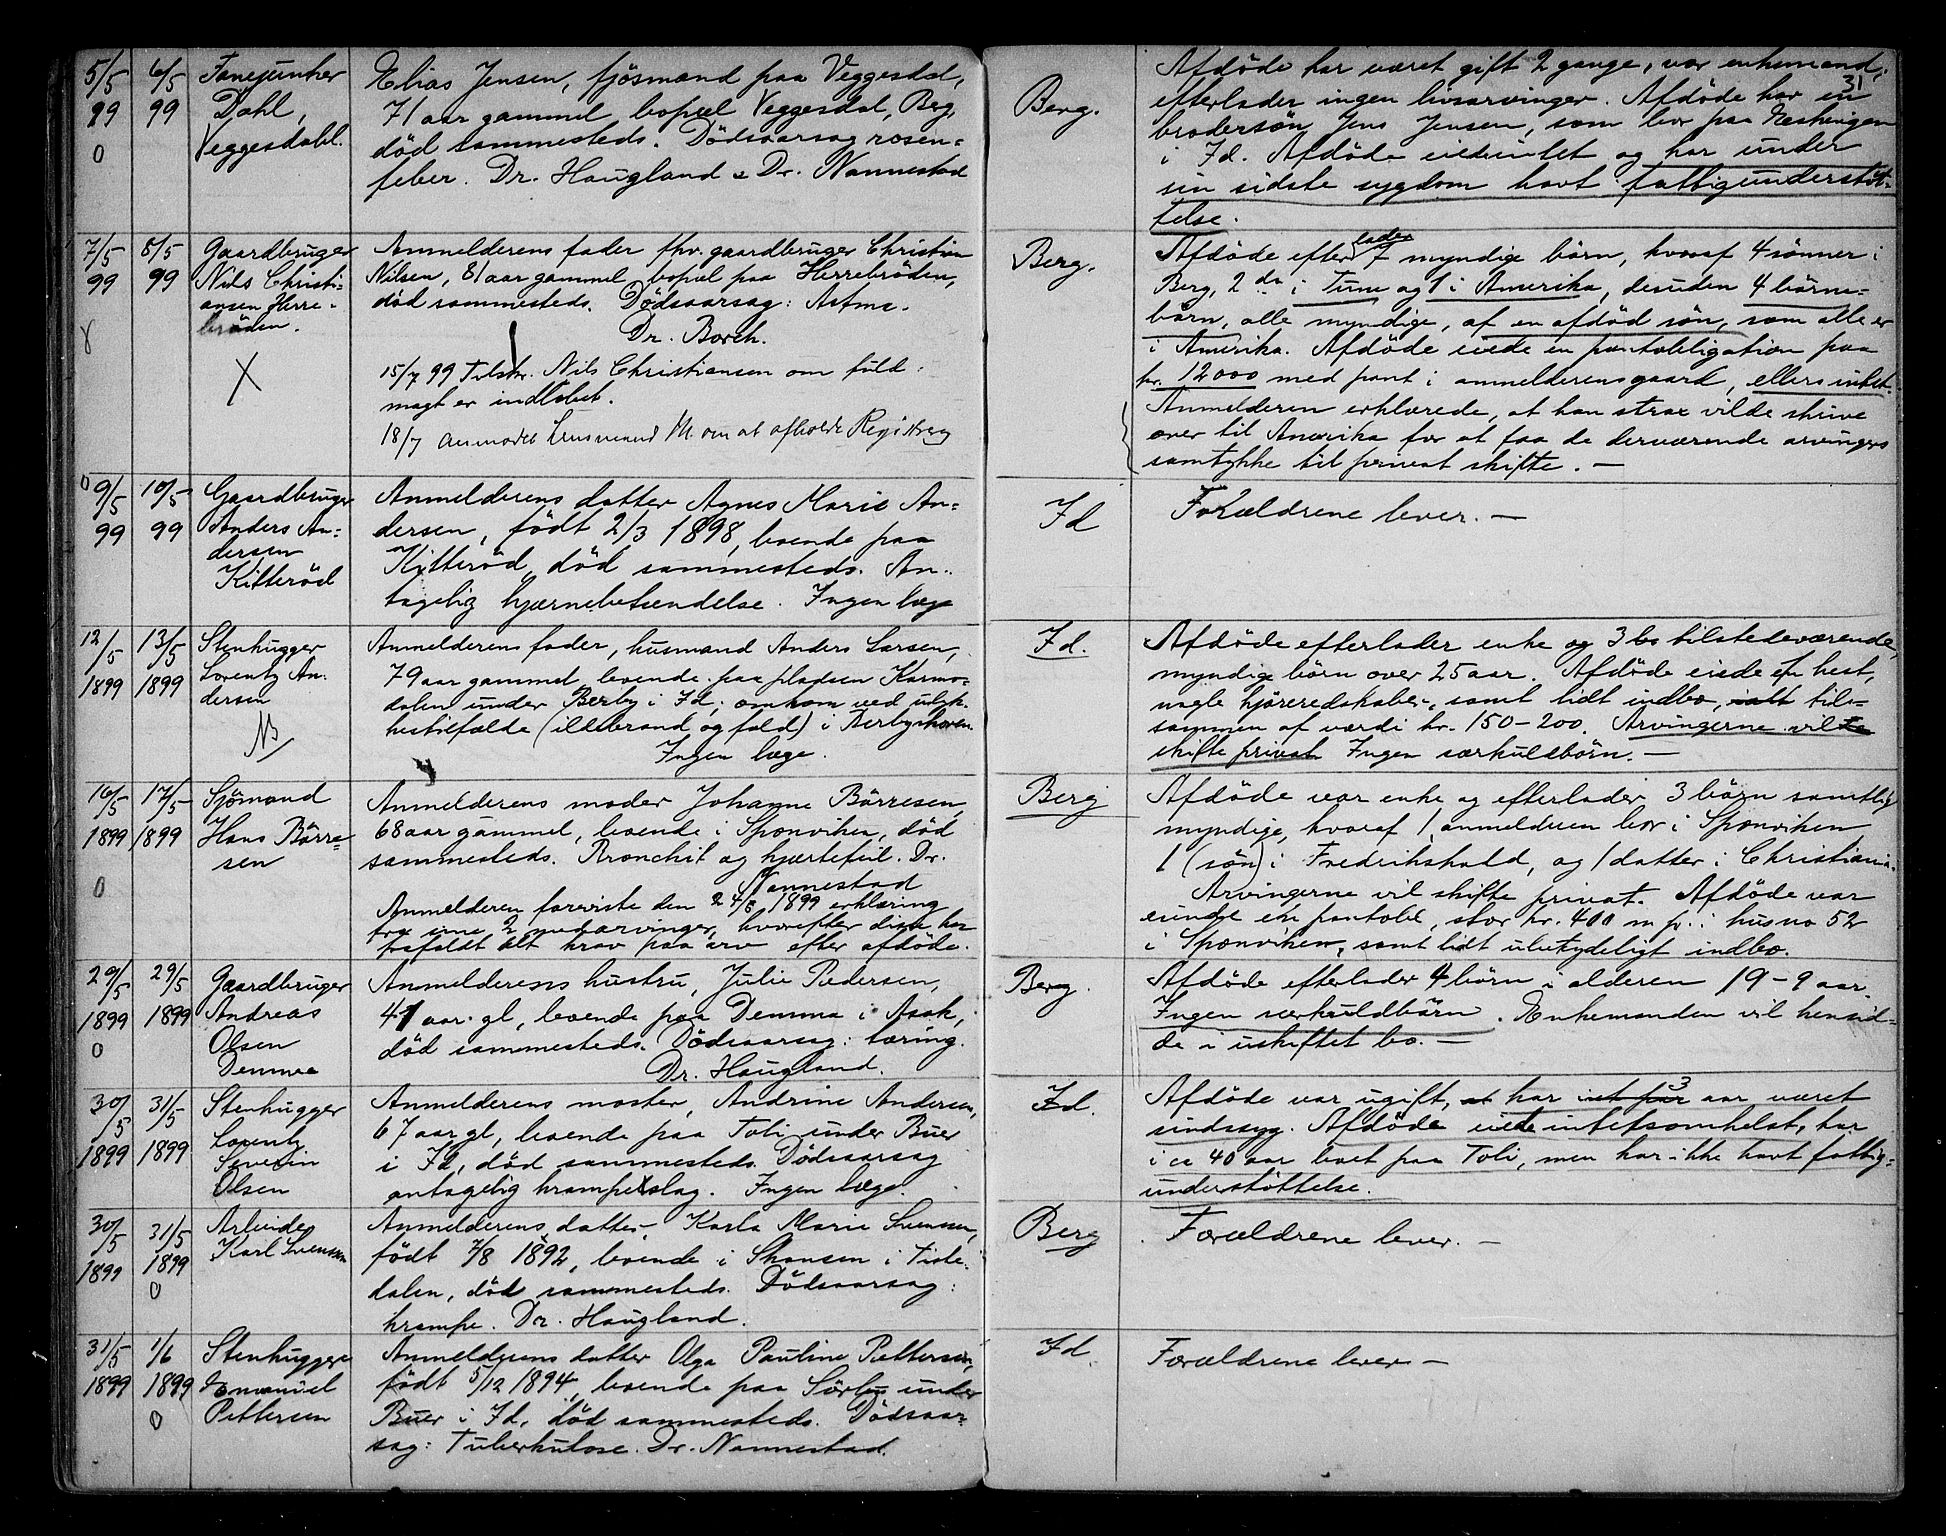 5/5 99 0
6/5 99
Fanejunker
Dahl,
Veggesdahl.
Elias Jensen, fjösmand paa Veggesdal,
71 aar gammel, bopæl Veggesdal, Berg,
död sammesteds. Dödsaarsag rosen-
feber. Dr. Haugland & Dr. Nannestad
Berg.
31
Afdöde har været gift 2 gange, var enkemand,
efterlader ingen livsarvinger. Afdöde har en
brodersön Jens Jensen, som bor paa
i Id. Afdöde eiede intet og har under
sin sidste sygdom havt fattigunderstöt-
telse.
7/5 99
8/5 99
Gaardbruger
Nils Christi-
ansen Herre-
bröden.
X
Anmelderens fader fhv. gaardbruger Christian
Nilsen, 81 aar gammel, bopæl paa Herrebröden,
död sammesteds. Dödsaarsag: Astma.
Dr. Borch.
15/7 99 Tilskr. Nils Christiansen om fuld-
magt er indløbet.
18/7 anmodet Lensmand M. om at afholde Registrerg
Berg.
Afdöde efterlader 7 myndige börn, hvoraf 4 sönner i
Berg, 2 do i Tune og 1 i Amerika, desuden 4 börne-
börn, alle myndige, af en afdöd sön, som alle er
i Amerika. Afdöde eiede en pantobligation paa
kr. 12000 med pant i anmelderens gaard, ellers intet.
Anmelderen erklærede, at han strax vilde skrive
over til Amerika for at faa de derværende arvingers
samtykke til privat skifte. —
0 9/5 99
10/5 99
Gaardbruger
Anders An-
dersen
Kitteröd
Anmelderens datter Agnes Marie An-
dersen, födt 2/3 1898, boende paa
Kitteröd, död sammesteds. An-
tagelig hjernebetændelse. Ingen læge
Id
Forældrene lever. —
12/5 1899
13/5 1899
Stenhugger
Lorentz An-
dersen
Anmelderens fader, husmand Anders Larsen,
79 aar gammel, boende paa pladsen Karmo-
dalen under Berby i Id; omkom ved ulyk-
kestilfælde (ildebrand og fald) i Berbyskoven.
Ingen læge.
Id.
Afdöde efterlader enke og 3 tilstedeværende,
myndige börn over 25 aar. Afdöde eiede en hest,
nogle kjöreredskaber, samt lidt indbo, til-
sammen af værdi kr. 150-200. Arvingerne vil
skifte privat. Ingen særkulsbörn. —
16/5 1899 0
17/5 1899
Sjömand
Hans Börre-
sen
Anmelderens moder Johanne Börresen,
68 aar gammel, boende i Sponviken, död
sammesteds. Bronchit og hjertefeil. Dr.
Nannestad
Anmelderen foreviste den 24/5 1899 erklæring
fra sine 2 medarvinger, hvorefter disse har
frafaldt alt krav paa arv efter afdöde.
Berg
Afdöde var enke og efterlader 3 börn samtlig
myndige, hvoraf 1, anmelderen bor i Sponviken
1 (sön) i Fredrikshald, og 1 datter i Christiania.
Arvingerne vil skifte privat. Afdöde var
eiende en pantobl. stor kr. 400 m. p. i hus no 52
i Sponviken, samt lidt ubetydeligt indbo.
29/5 1899 0
29/5 1899
Gaardbruger
Andreas
Olsen
Demma
Anmelderens hustru, Julie Pedersen,
41 aar gl, boende paa Demma i Asak,
död sammesteds. Dödsaarsag: tæring.
Dr. Haugland.
Berg.
Afdöde efterlader 4 börn i alderen 19-9 aar.
Ingen særkuldbörn. Enkemanden vil hensid-
de i uskiftet bo. —
30/5 1899
31/5 1899
Stenhugger
Lorentz
Severin
Olsen
Anmelderens moster, Andrine Andersen,
67 aar gl, boende paa Toli under Buer
i Id, död sammesteds. Dödsaarsag
antagelig krampeslag. Ingen læge.
Id.
Afdöde var ugift, har i 3 aar været
sindssyg. Afdöde eiede intetsomhelst, har
i ca 40 aar boet paa Toli, men har ikke havt fattig-
understöttelse.
30/5 1899
31/5 1899 0
Arbeider
Karl Svensen
Anmelderens datter Karla Marie Svensen,
födt 7/8 1892, boende i Skansen i Tiste-
dalen, död sammesteds. Dödsaarsag:
krampe. Dr. Haugland.
Berg
Forældrene lever. —
31/5 1899
1/6 1899 0
Stenhugger
Emanuel
Pettersen
Anmelderens datter Olga Pauline Pettersen,
födt 5/12 1894, boende paa Sörby under
Buer i Id, död sammesteds. Dödsaar-
sag: Tuberkulose. Dr. Nannestad.
Id.
Forældrene lever —